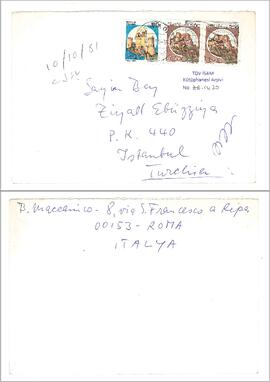 10/10/81
TDV İSAM
Kütüphanesi Arşivi
No ZE.14.20
Sayın Bay
Ziyad Ebüzziya
P.K. 440
Istanbul
Turchia
B. Maccanico - 8, via S. Francesco a Ripa
00153 - ROMA
ITALYA